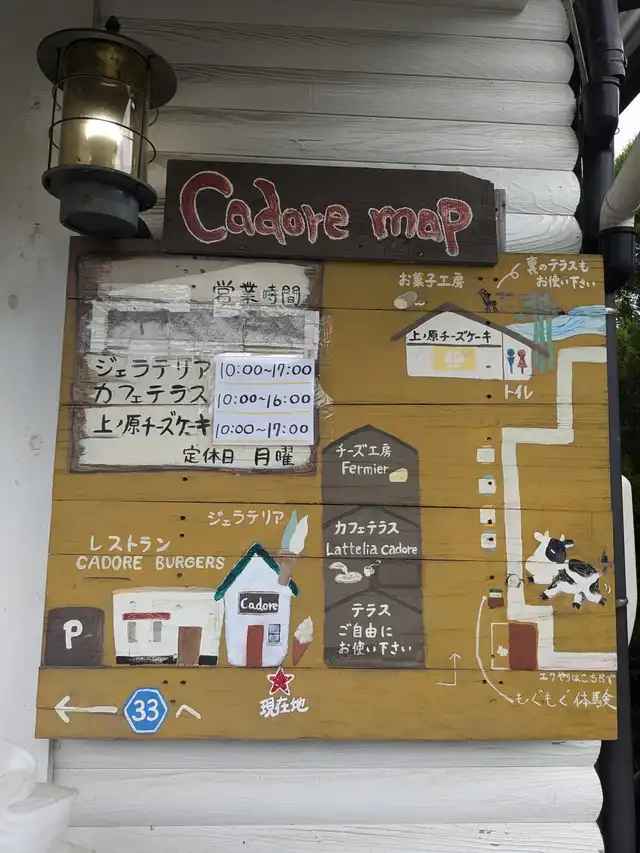 Cadore map
営業時間
ジェラテリア 10:00~17:00
カフェテラス 10:00~16:00
上ノ原チーズケーキ 10:00~17:00
定休日 月曜
お菓子工房
裏のテラスも
お使い下さい
上ノ原チーズケーキ
トイレ
チーズ工房
Fermier
カフェテラス
Lattelia cadore
テラス
ご自由に
お使い下さい
ジェラテリア
レストラン
CADORE BURGERS
Cadore
P
現在地
33
へ
エサやりはこちらです
もぐもぐ体験